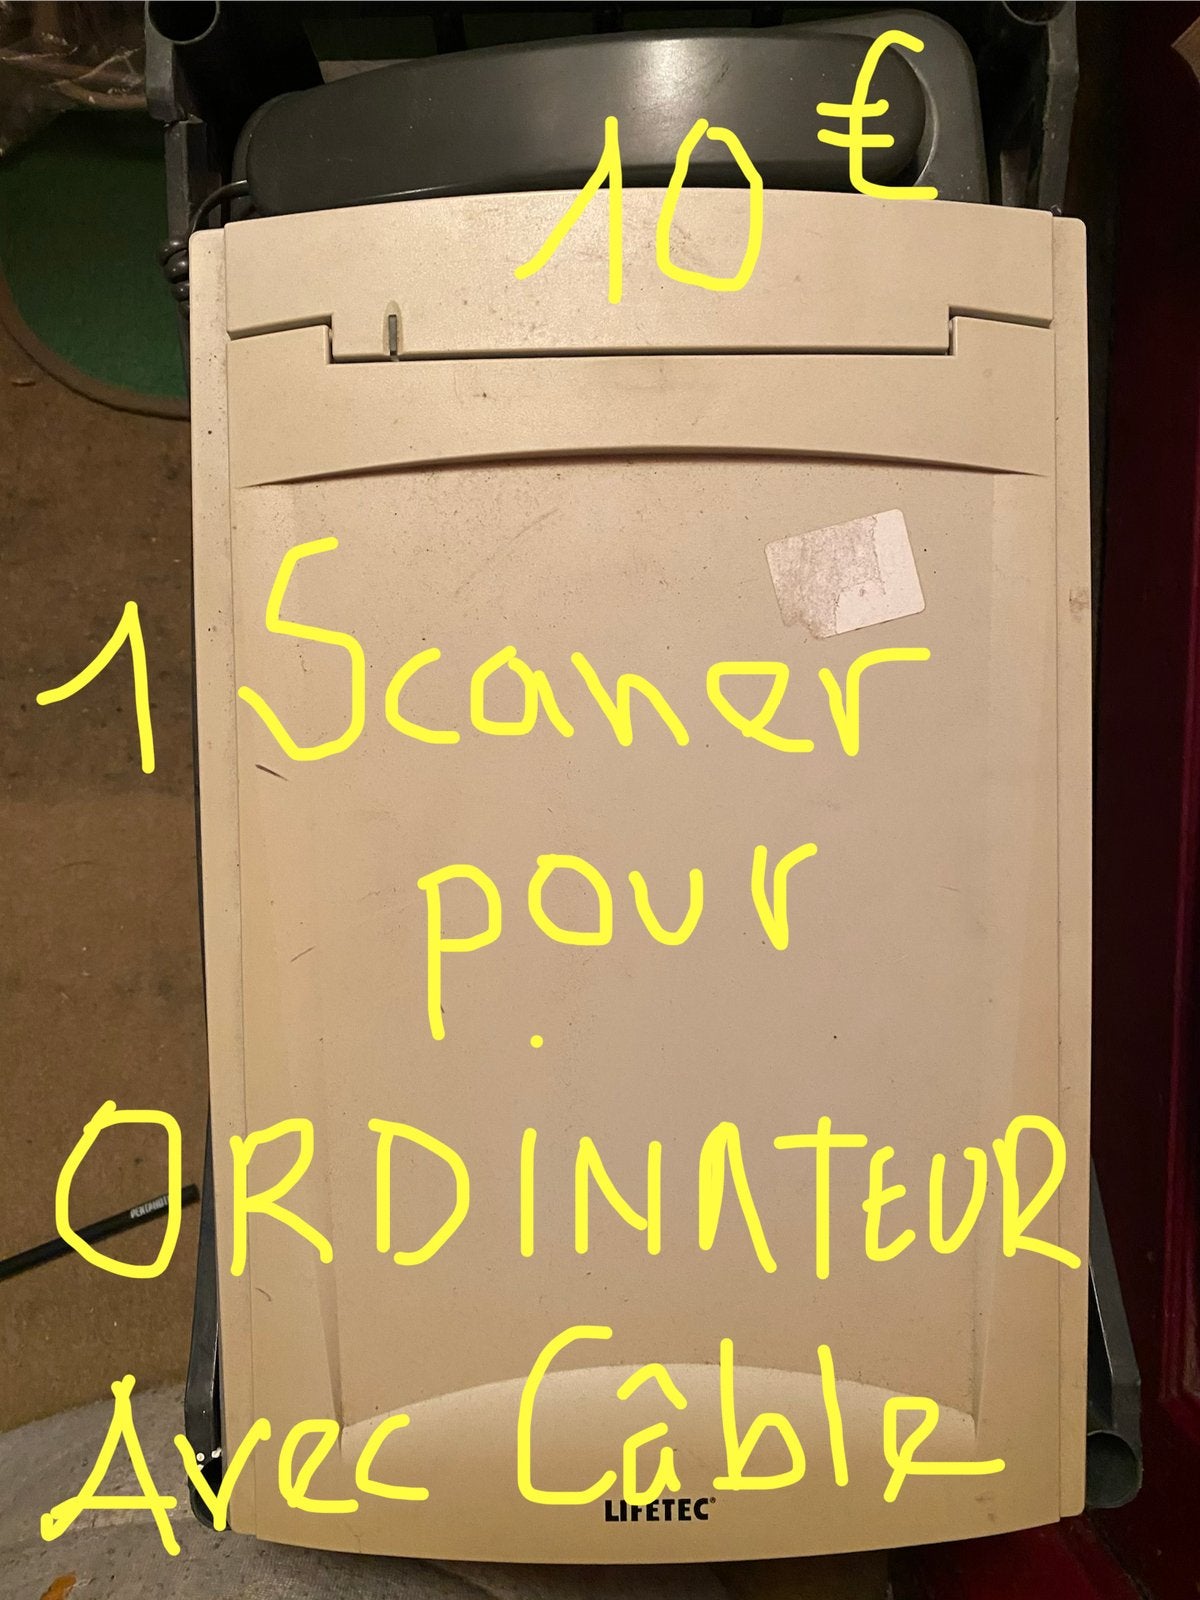 10 €
1 Scaner
pour
ORDINATEUR
PENTAHOT
Avec Câble
LIFETEC®